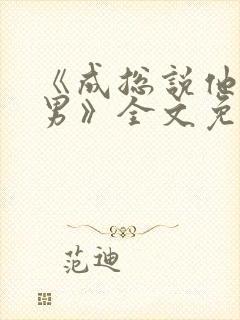 《成总说他
男》全文免
范迪